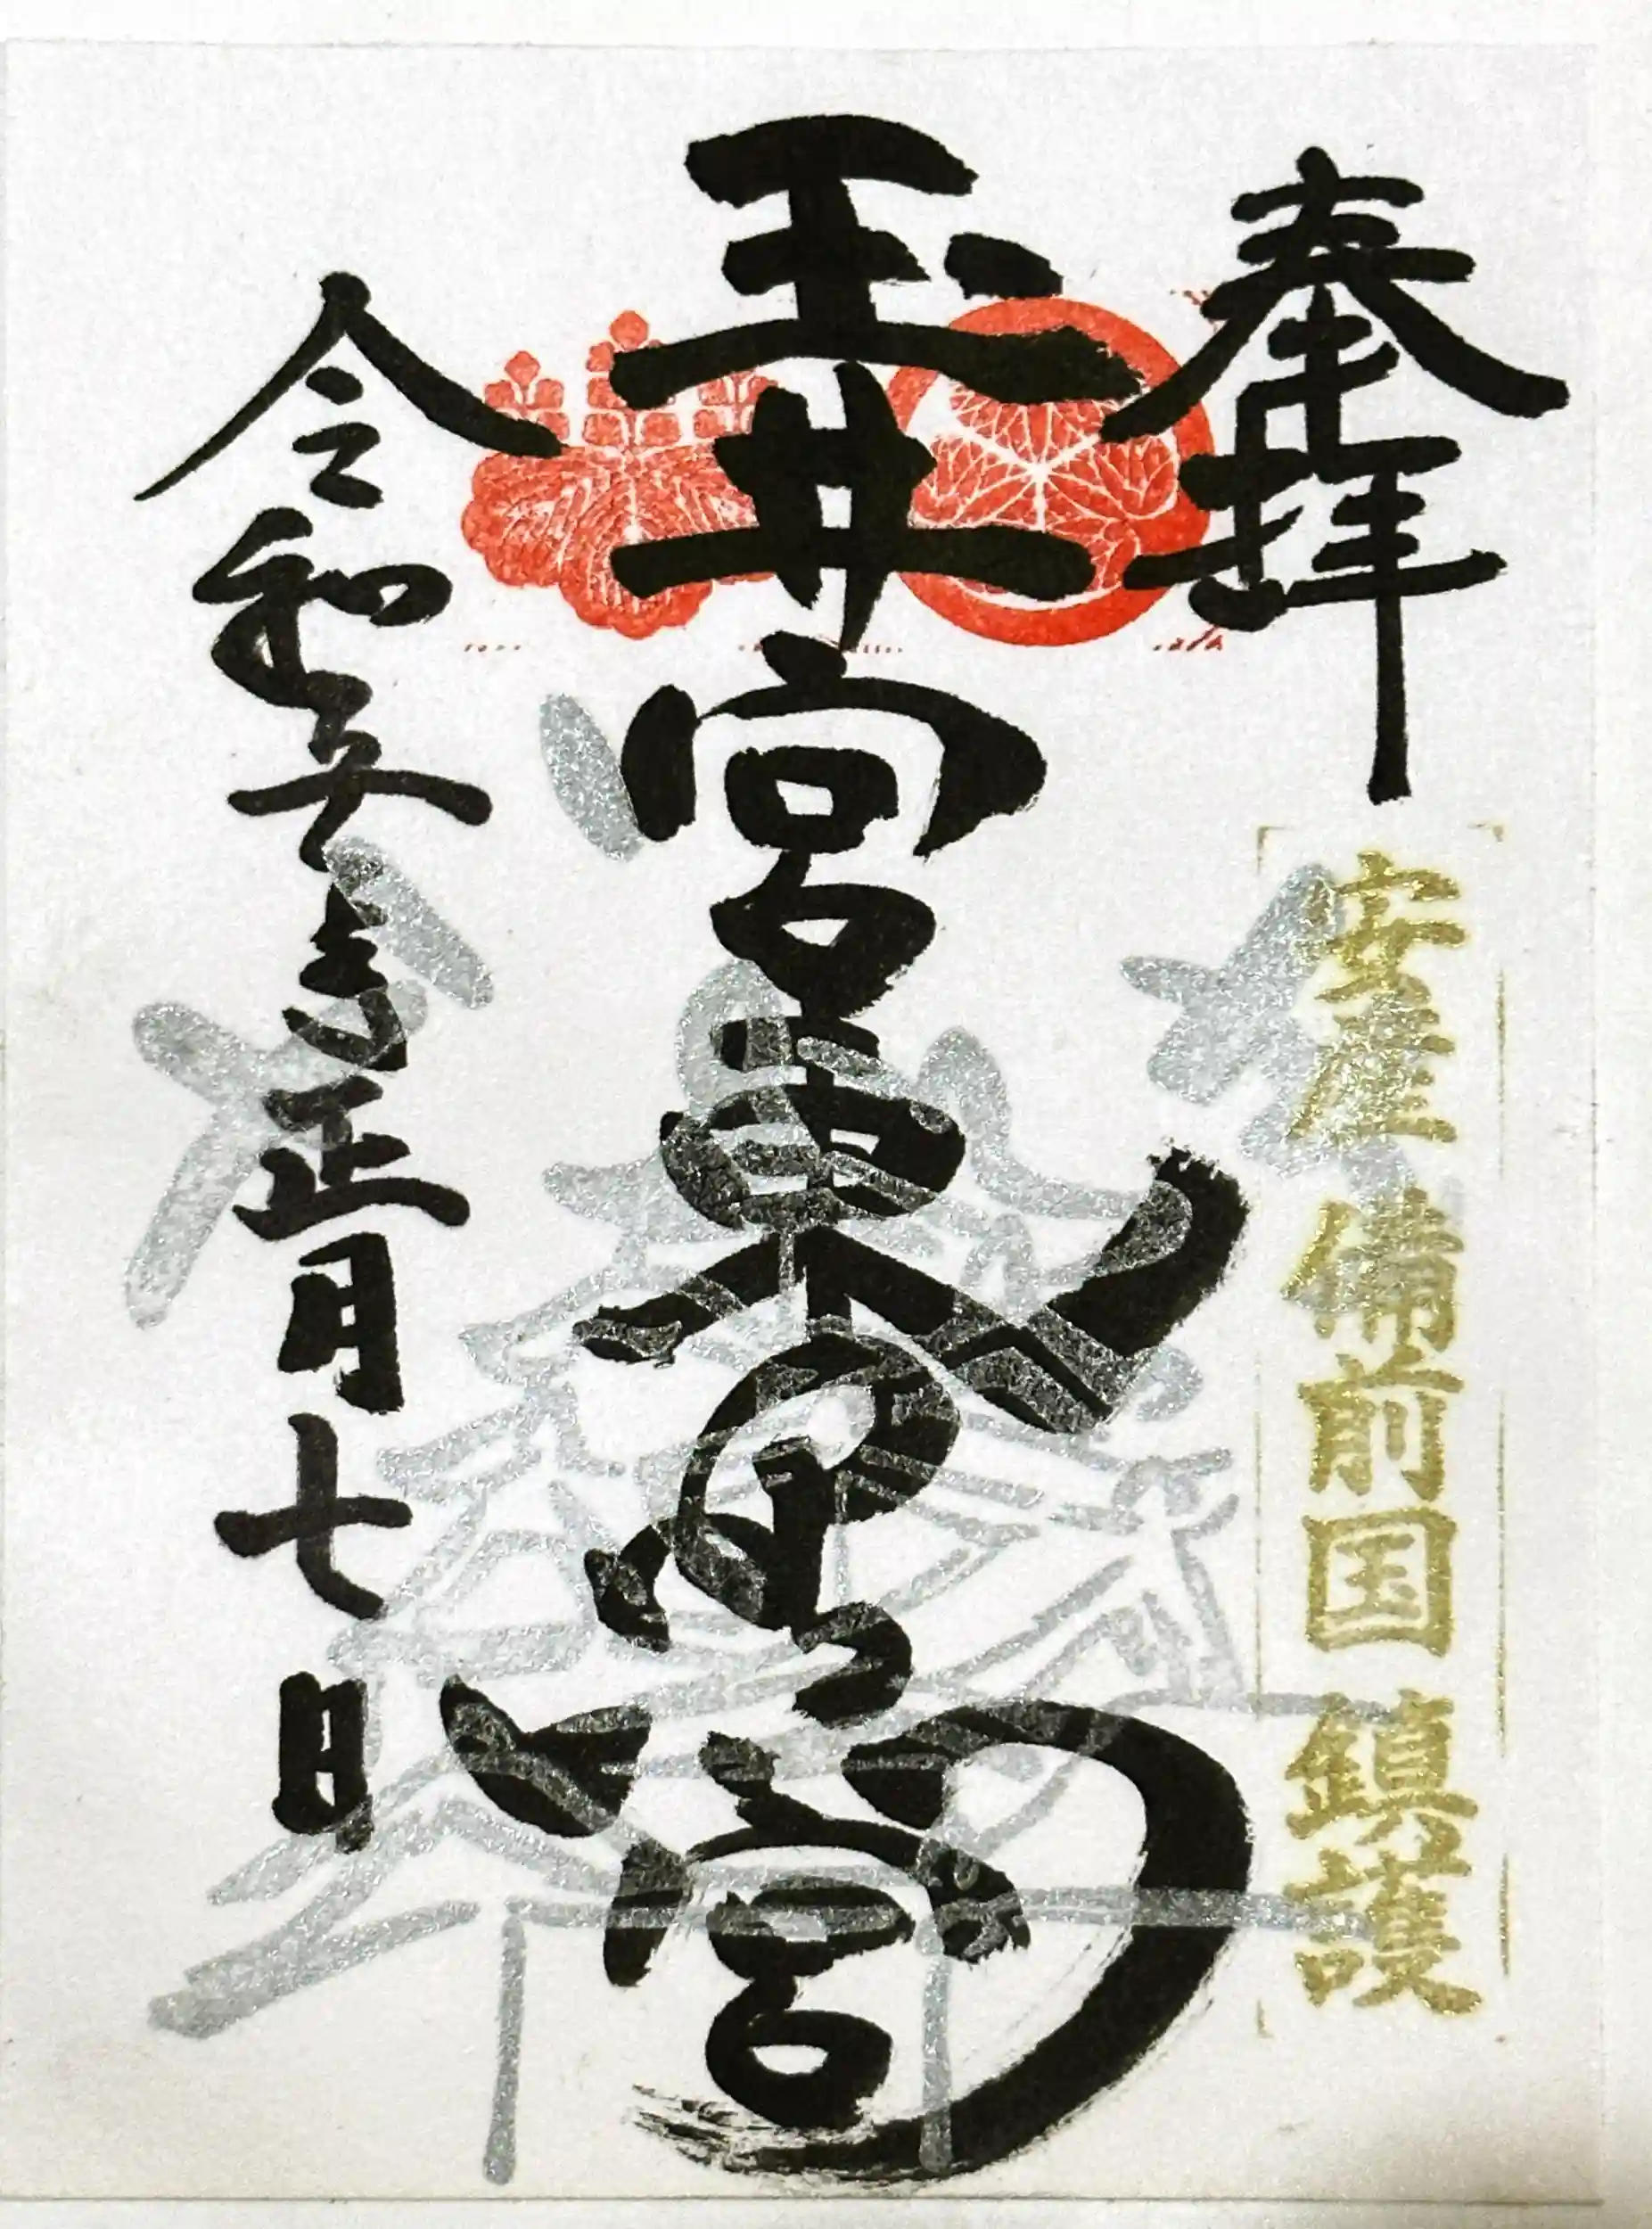 奉拝
安産 備前国 鎮護
玉井宮東照宮
令和年正月七日